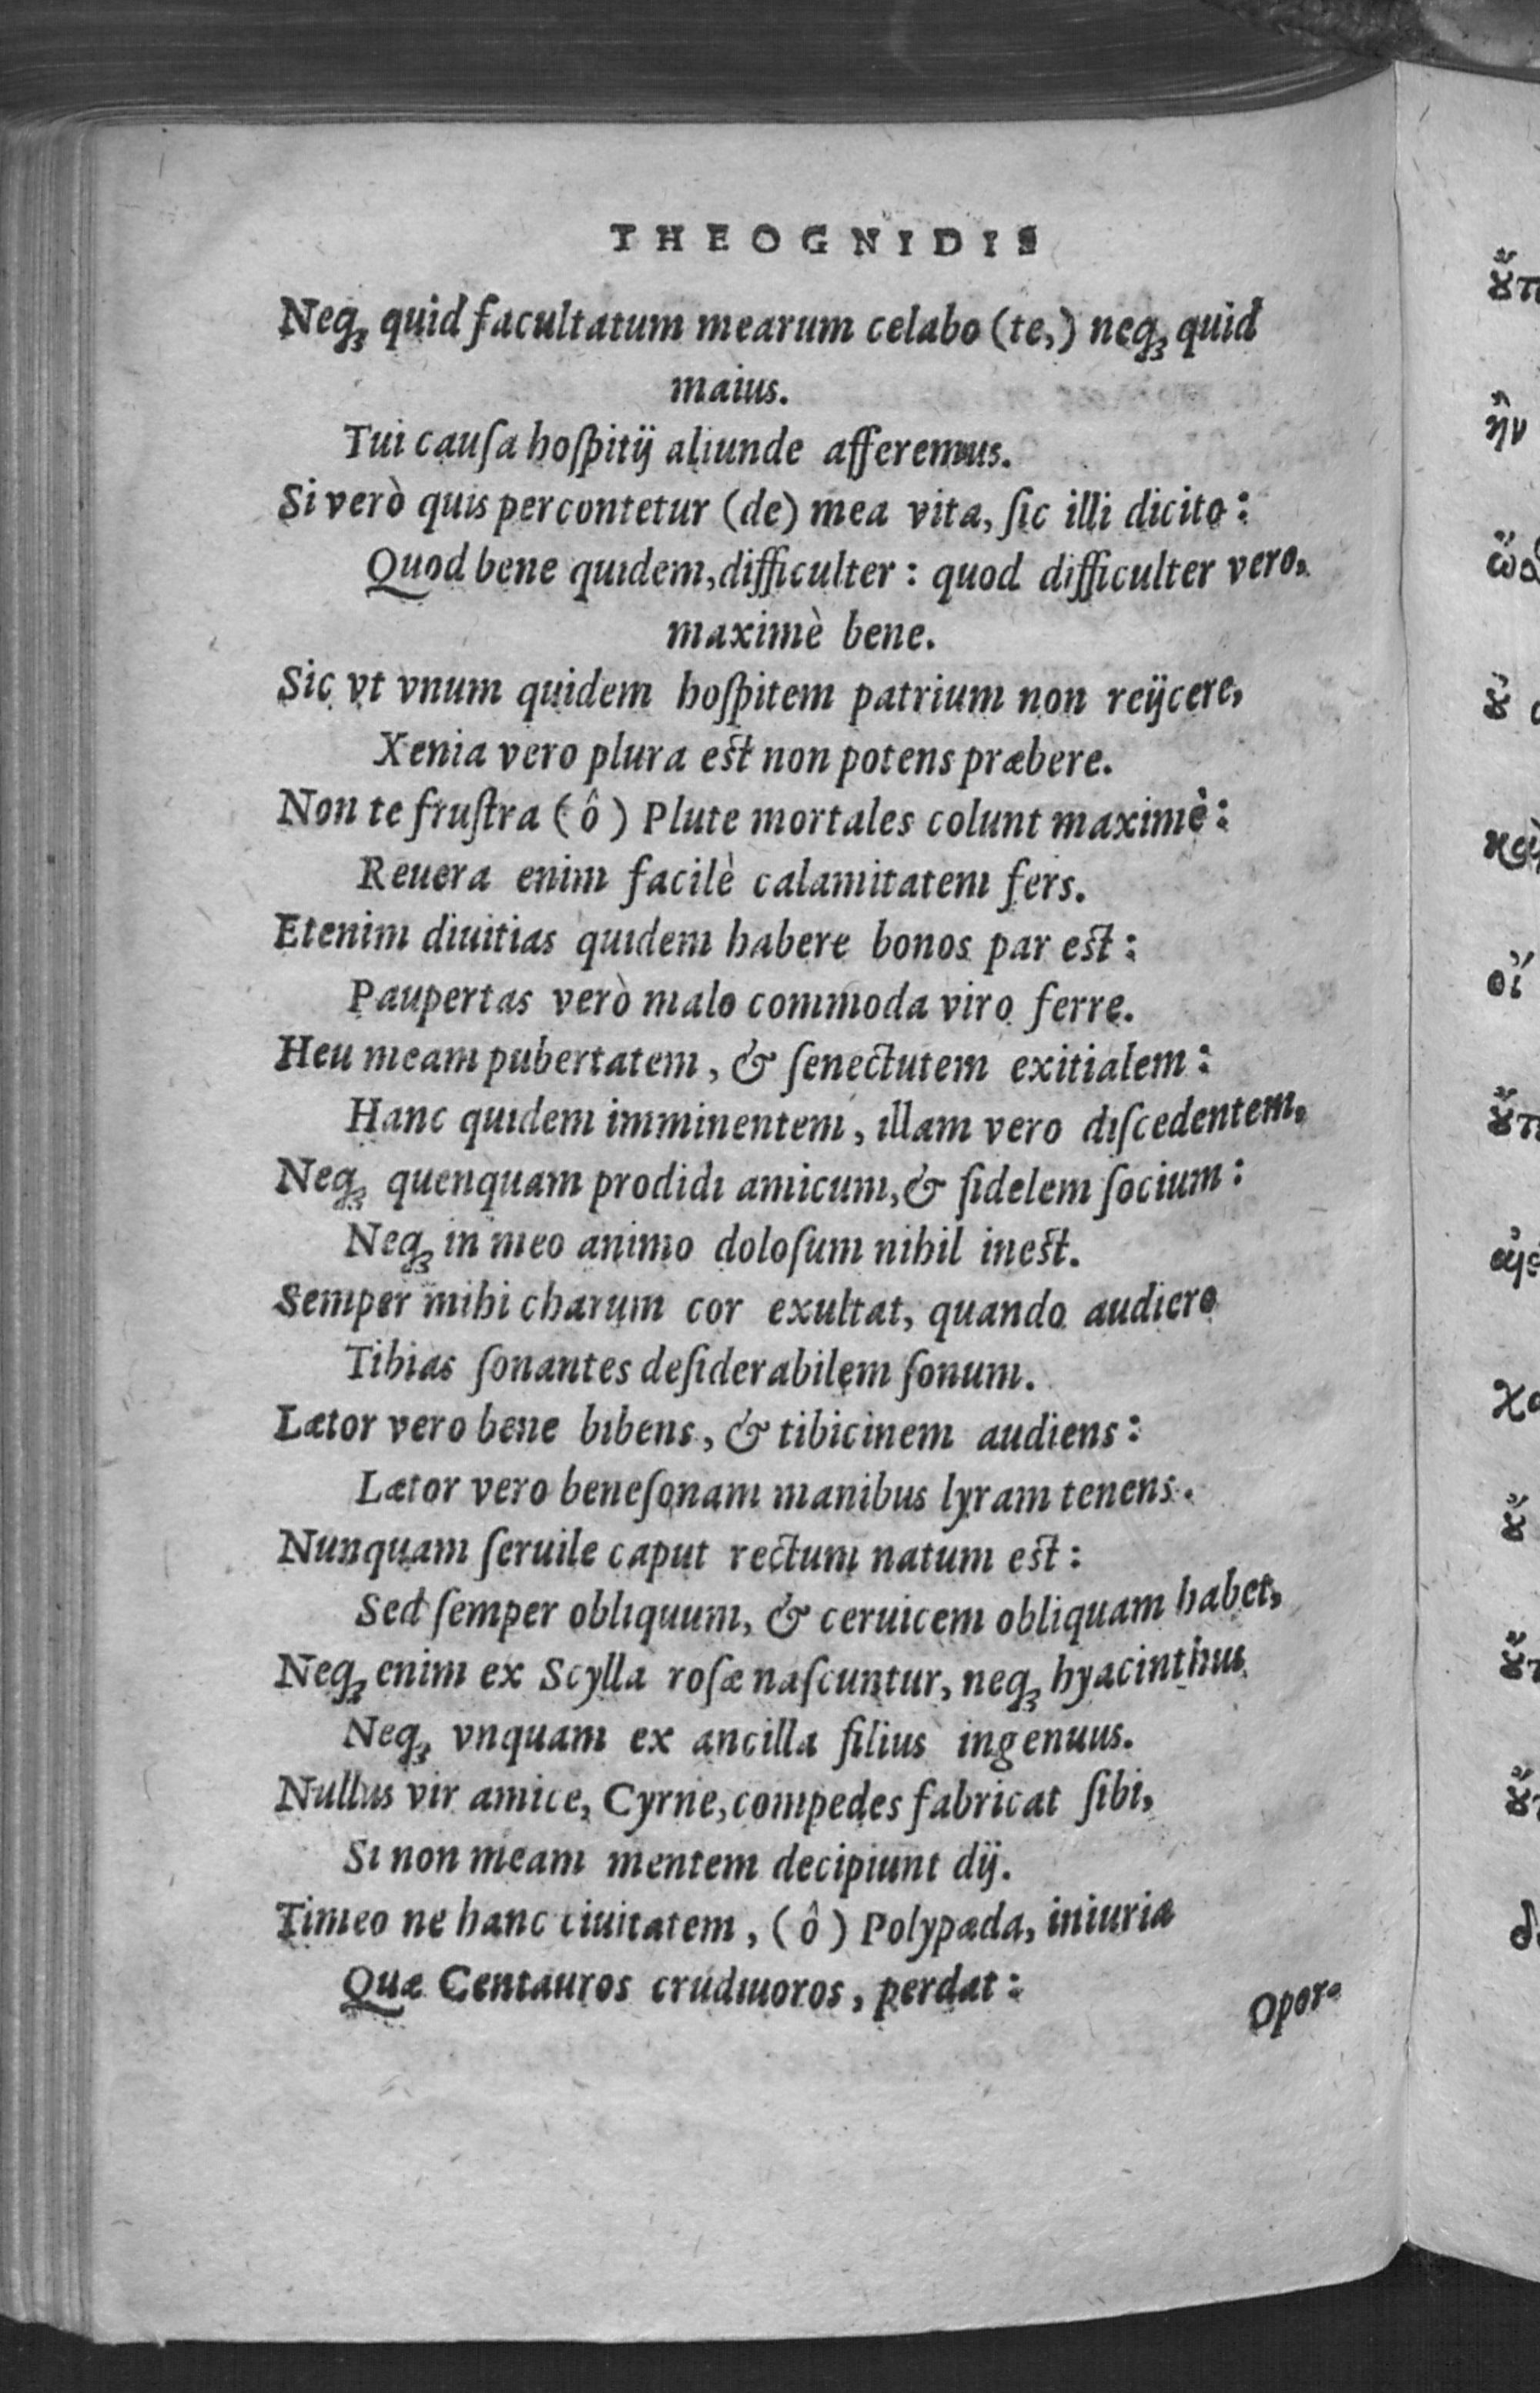 THEOGNIDIS
Neq&#xA757; quid facultatum mearum celabo (te,) neqꝫ quid
maius.
Tui cauſa hoſpitij aliunde afferemus.
Si verò quis percontetur (de) mea vita, ſic illi dicito:
Quod bene quidem, difficulter: quod difficulter vero,
maximè bene.
Sic vt vnum quidem hoſpitem patrium non reijcere,
Xenia vero plura est non potens præbere.
Non te fruſtra (ô) Plute mortales colunt maximè:
Reuera enim facilè calamitatem fers.
Etenim diuitias quidem habere bonos par est:
Paupertas verò malo commoda viro ferre.
Heu meam pubertatem, & ſenectutem exitialem:
Hanc quidem imminentem, illam vero diſcedentem,
Neqꝫ quenquam prodidi amicum, & fidelem ſocium:
Neqꝫ in meo animo doloſum nihil inest.
Semper mihi charum cor exultat, quando audiero
Tibias ſonantes deſiderabilem ſonum.
Lætor vero bene bibens, & tibicinem audiens:
Lætor vero beneſonam manibus lyram tenens.
Nunquam ſeruile caput rectum natum est:
Sed ſemper obliquum, & ceruicem obliquam habet,
Neqꝫ enim ex Scylla roſæ naſcuntur, neqꝫ hyacinthus
Neqꝫ vnquam ex ancilla filius ingenuus.
Nullus vir amice, Cyrne, compedes fabricat ſibi,
Si non meam mentem decipiunt dij.
Timeo ne hanc ciuitatem, (ô) Polypæda, iniuria
Quæ Centauros crudiuoros, perdat:
Opor-